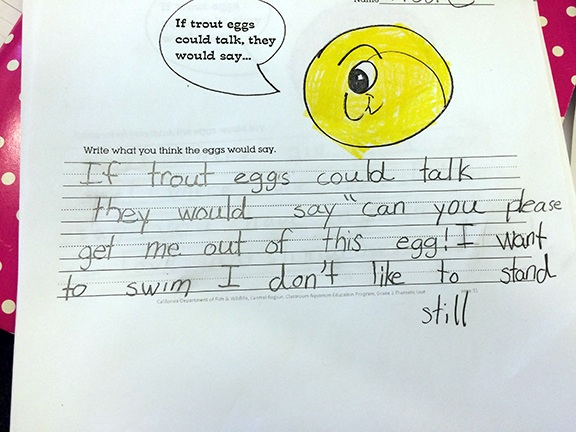 Name
If trout eggs
could talk, they
would say...
Write what you think the eggs would say.
If trout eggs could talk
they would say "can you please
get me out of this egg! I want
to swim I don't like to stand
California Department of Fish & Wildlife, Central Region, Classroom Aquarium Education Program, Grade 2 Thematic Unit
still